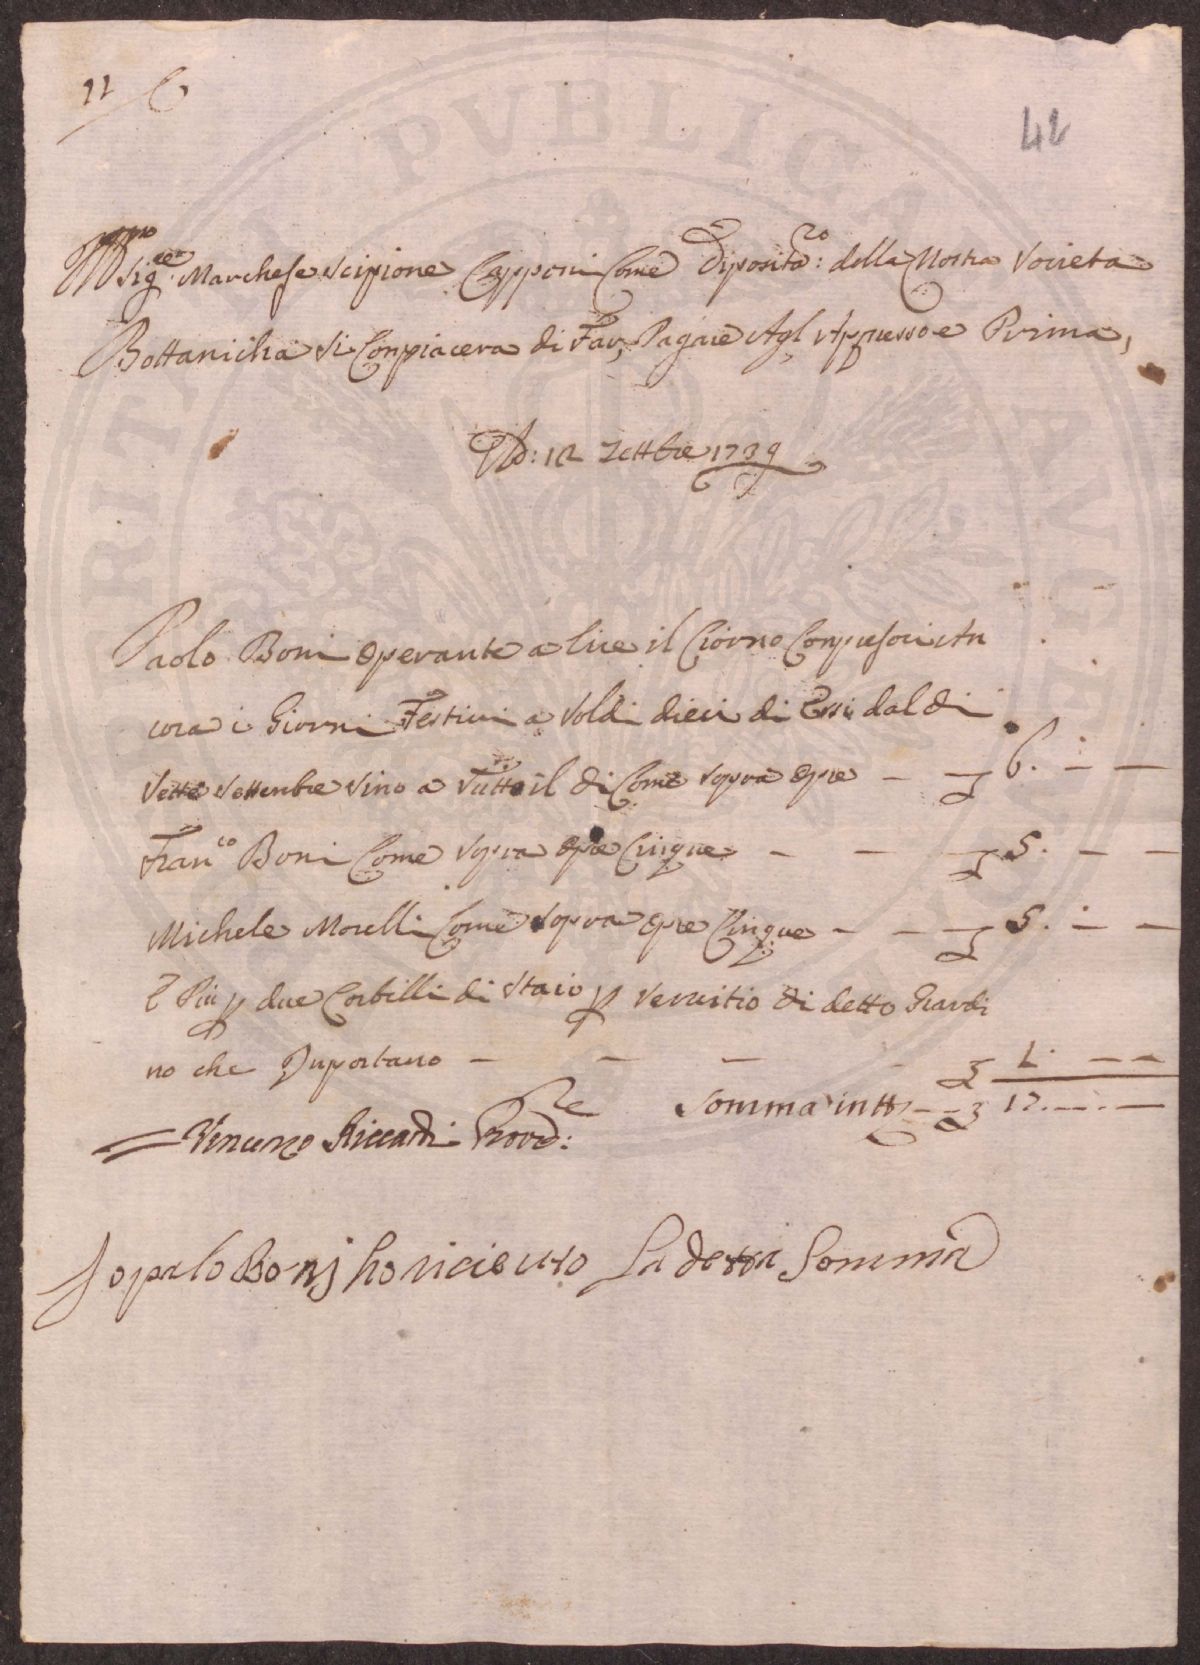 11
42
Sig.re Marchese Scipione Capponi Come Dipositа.ro: della Nostra Società
Bottanicha Si Conpiacera di Far, Pagare Agl Appresso e Prima,
Ad: 12 Settbre 1739
Paolo Boni Operante a lire il Giorno Conpresoci An
cora i Giorni Festivi a Soldi dieci di Essi dal di
Sette Settenbre Sino a Tutto il di Come Sopra Opre — — 6. — —
Fran.co Boni Come Sopra Opre Cinque — — — 5. — —
Michele Morelli Come Sopra Opre Cinque — — — 5. — —
E Piu p due Corbelli di Staio p Servitio di detto Giardi
no che Inportano — — — 1. — —
Somma in tt — — 17. — —
Vincenzo Riccardi Prov.re:
Io palo Bonj ho riceuto La detta Somma